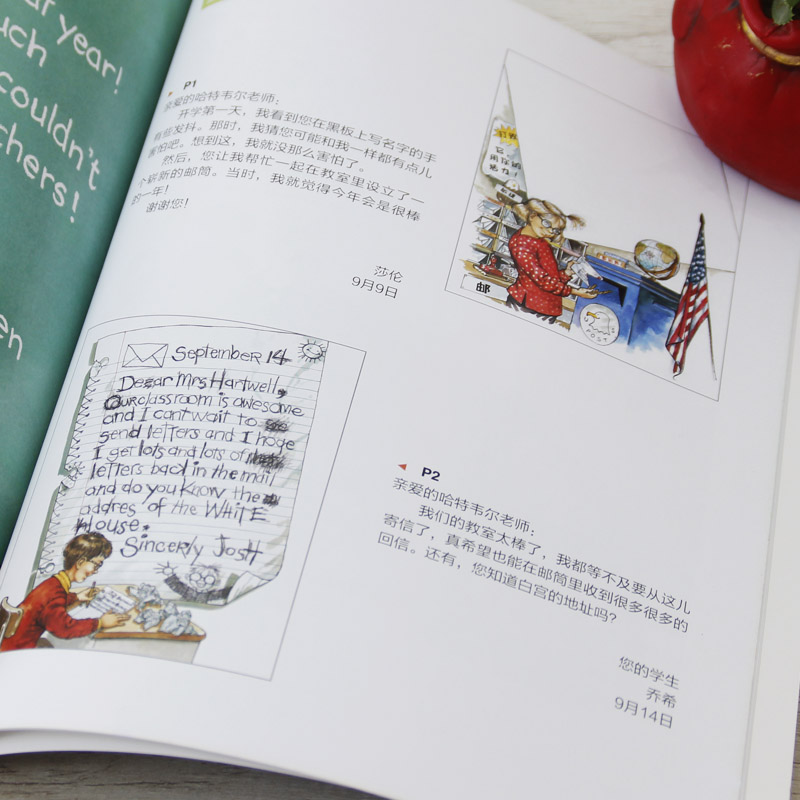 year!
couldn't
chers!
P1
亲爱的哈特韦尔老师:
开学第一天，我看到您在黑板上写名字的手
有些发抖。那时，我猜您可能和我一样都有点儿
害怕吧。想到这，我就没那么害怕了。
然后，您让我帮忙一起在教室里设立了一
个崭新的邮筒。当时，我就觉得今年会是很棒
的一年！
谢谢您！
莎伦
9月9日
邮
POST
September 14
Dear Mrs Hartwell,
Our classroom is awesome
and I cant wait to
send letters and I hope
I get lots and lots of
letters back in the mail
and do you know the
addres of the WHITE
House.
Sincerly Josh
P2
亲爱的哈特韦尔老师:
我们的教室太棒了，我都等不及要从这儿
寄信了，真希望也能在邮筒里收到很多很多的
回信。还有，您知道白宫的地址吗？
您的学生
乔希
9月14日